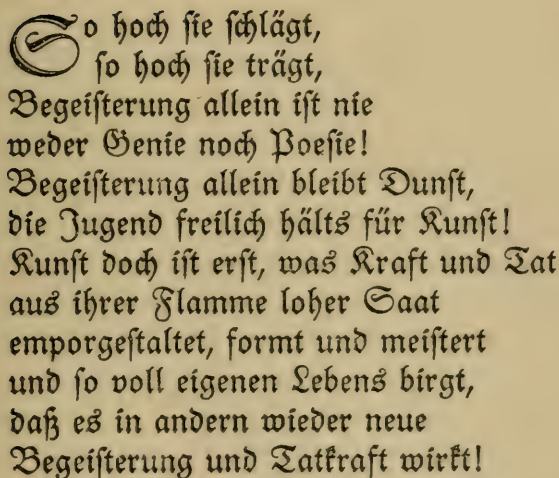 So hoch sie schlägt,
so hoch sie trägt,
Begeisterung allein ist nie
weder Genie noch Poesie!
Begeisterung allein bleibt Dunst,
die Jugend freilich hälts für Kunst!
Kunst doch ist erst, was Kraft und Tat
aus ihrer Flamme loher Saat
emporgestaltet, formt und meistert
und so voll eigenen Lebens birgt,
daß es in andern wieder neue
Begeisterung und Tatkraft wirkt!